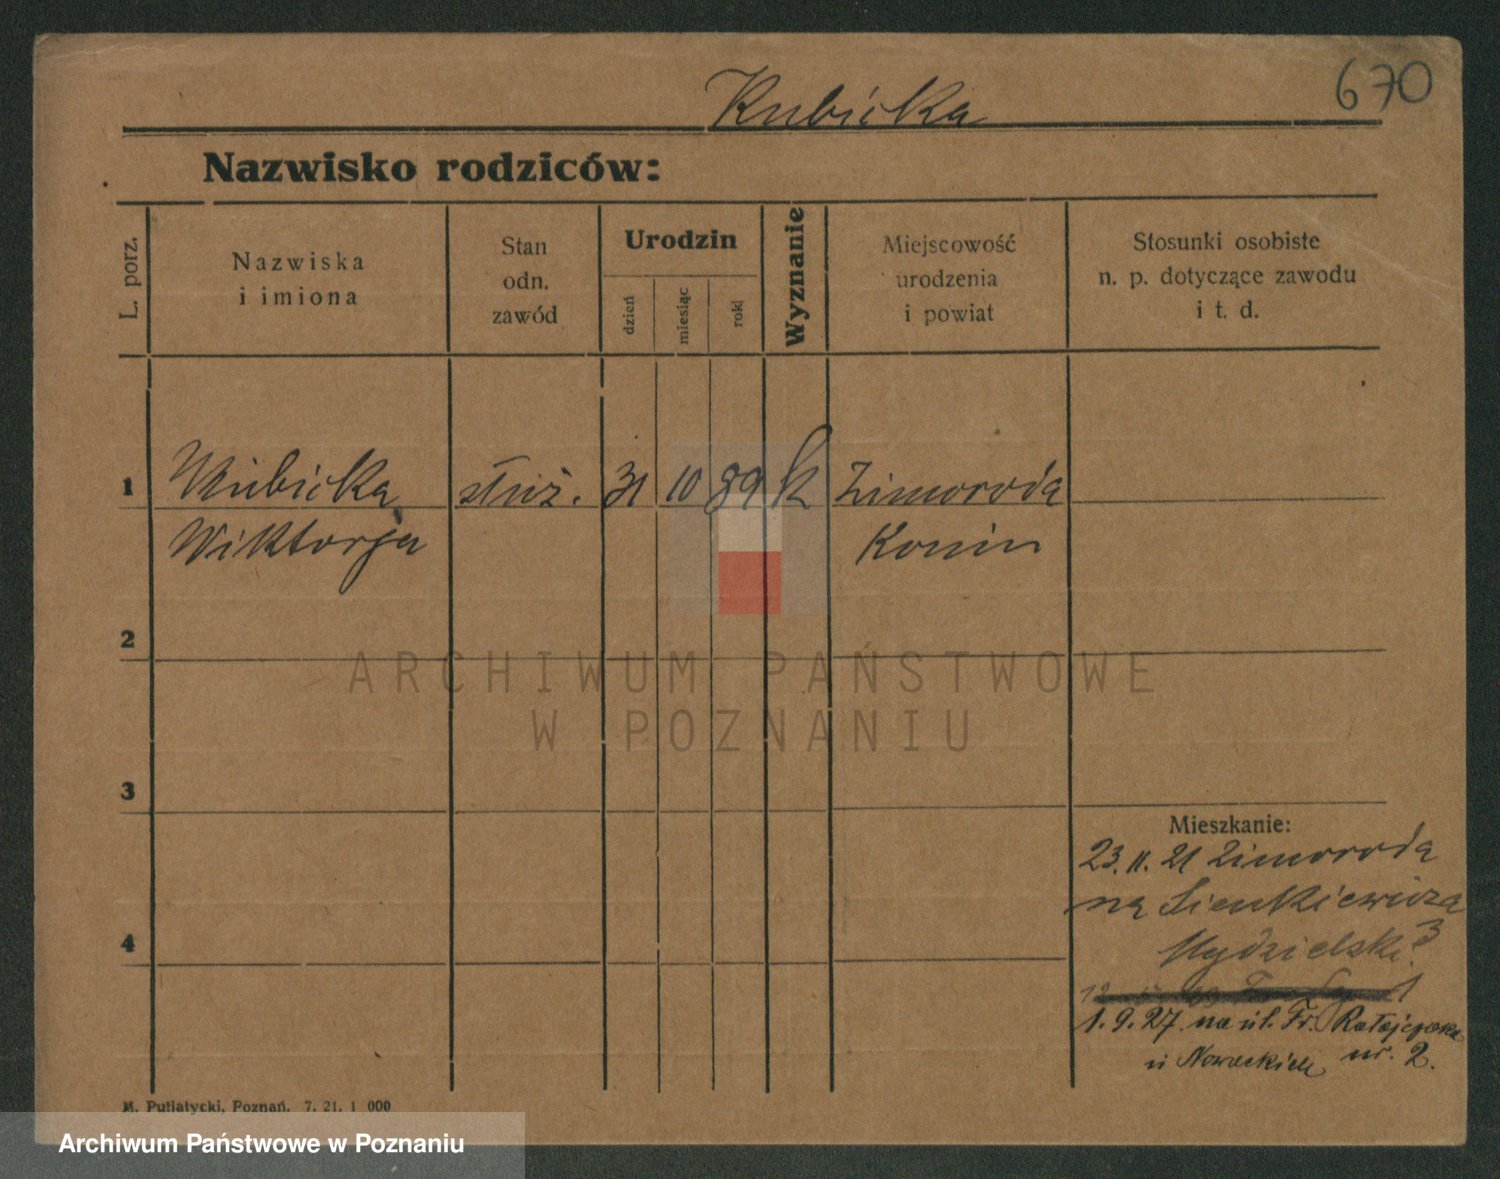 670
Kubicka
Nazwisko rodziców:
L. porz.
Nazwiska
i imiona
Stan
odn.
zawód
Urodzin
dzień
miesiąc
rok
Wyznanie
Miejscowość
urodzenia
i powiat
Stosunki osobiste
n. p. dotyczące zawodu
i t. d.
1
Kubicka służ. 31 10 89 k Zimoroda
Wiktorja Konin
2
ARCHIWUM PAŃSTWOWE
W POZNANIU
3
Mieszkanie:
23. 11. 21 Zimoroda
na Sienkiewicza
3
4
1. 9. 27 na ul. Fr. Ratajczaka
u Nowackich nr. 2.
M. Putiatycki, Poznań. 7. 21. 1 000
Archiwum Państwowe w Poznaniu